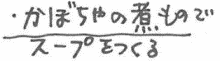 ・かぼちゃの煮もので
スープをつくる